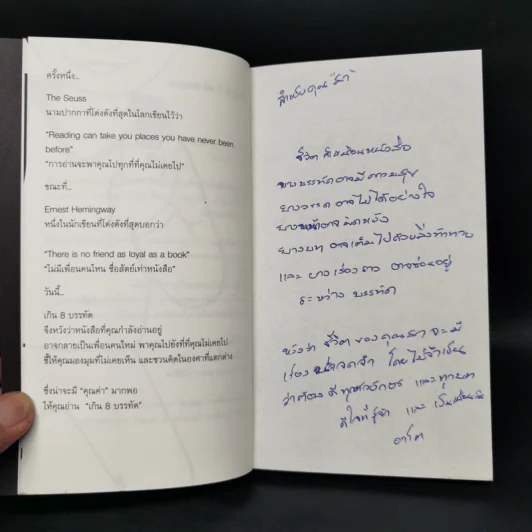 ครั้งหนึ่ง...
The Seuss
นามปากกาที่โด่งดังที่สุดในโลกเขียนไว้ว่า
"Reading can take you places you have never been
before"
"การอ่านจะพาคุณไปทุกที่ที่คุณไม่เคยไป"
ขณะที่...
Ernest Hemingway
หนึ่งในนักเขียนที่โด่งดังที่สุดบอกว่า
"There is no friend as loyal as a book"
"ไม่มีเพื่อนคนไหน ซื่อสัตย์เท่าหนังสือ"
วันนี้...
เกิน 8 บรรทัด
จึงหวังว่าหนังสือที่คุณกำลังอ่านอยู่
อาจกลายเป็นเพื่อนคนใหม่ พาคุณไปยังที่ที่คุณไม่เคยไป
ชี้ให้คุณมองมุมที่ไม่เคยเห็น และชวนคิดในองศาที่แตกต่าง
ซึ่งน่าจะมี "คุณค่า" มากพอ
ให้คุณอ่าน "เกิน 8 บรรทัด"
สำหรับคุณ
ชีวิต ก็เหมือนหนังสือ
บางบรรทัดอาจมีความสุข
บางวรรค อาจไม่ได้อย่างใจ
บางหน้าอาจผิดหวัง
บางบท อาจเต็มไปด้วยสิ่งท้าทาย
และ บางเรื่องราว อาจซ่อนอยู่
ระหว่าง บรรทัด
หวังว่า ชีวิต ของคุณ จะมี
เรื่องน่าจดจำ โดยไม่จำเป็น
ว่าต้องดีทุกตัวอักษร และทุกบท
ดีใจที่รู้จัก และ